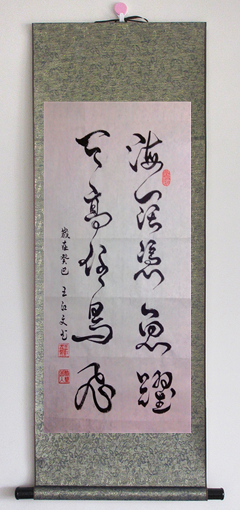 海阔凭鱼跃
天高任鸟飞
歲在癸巳 王江文书